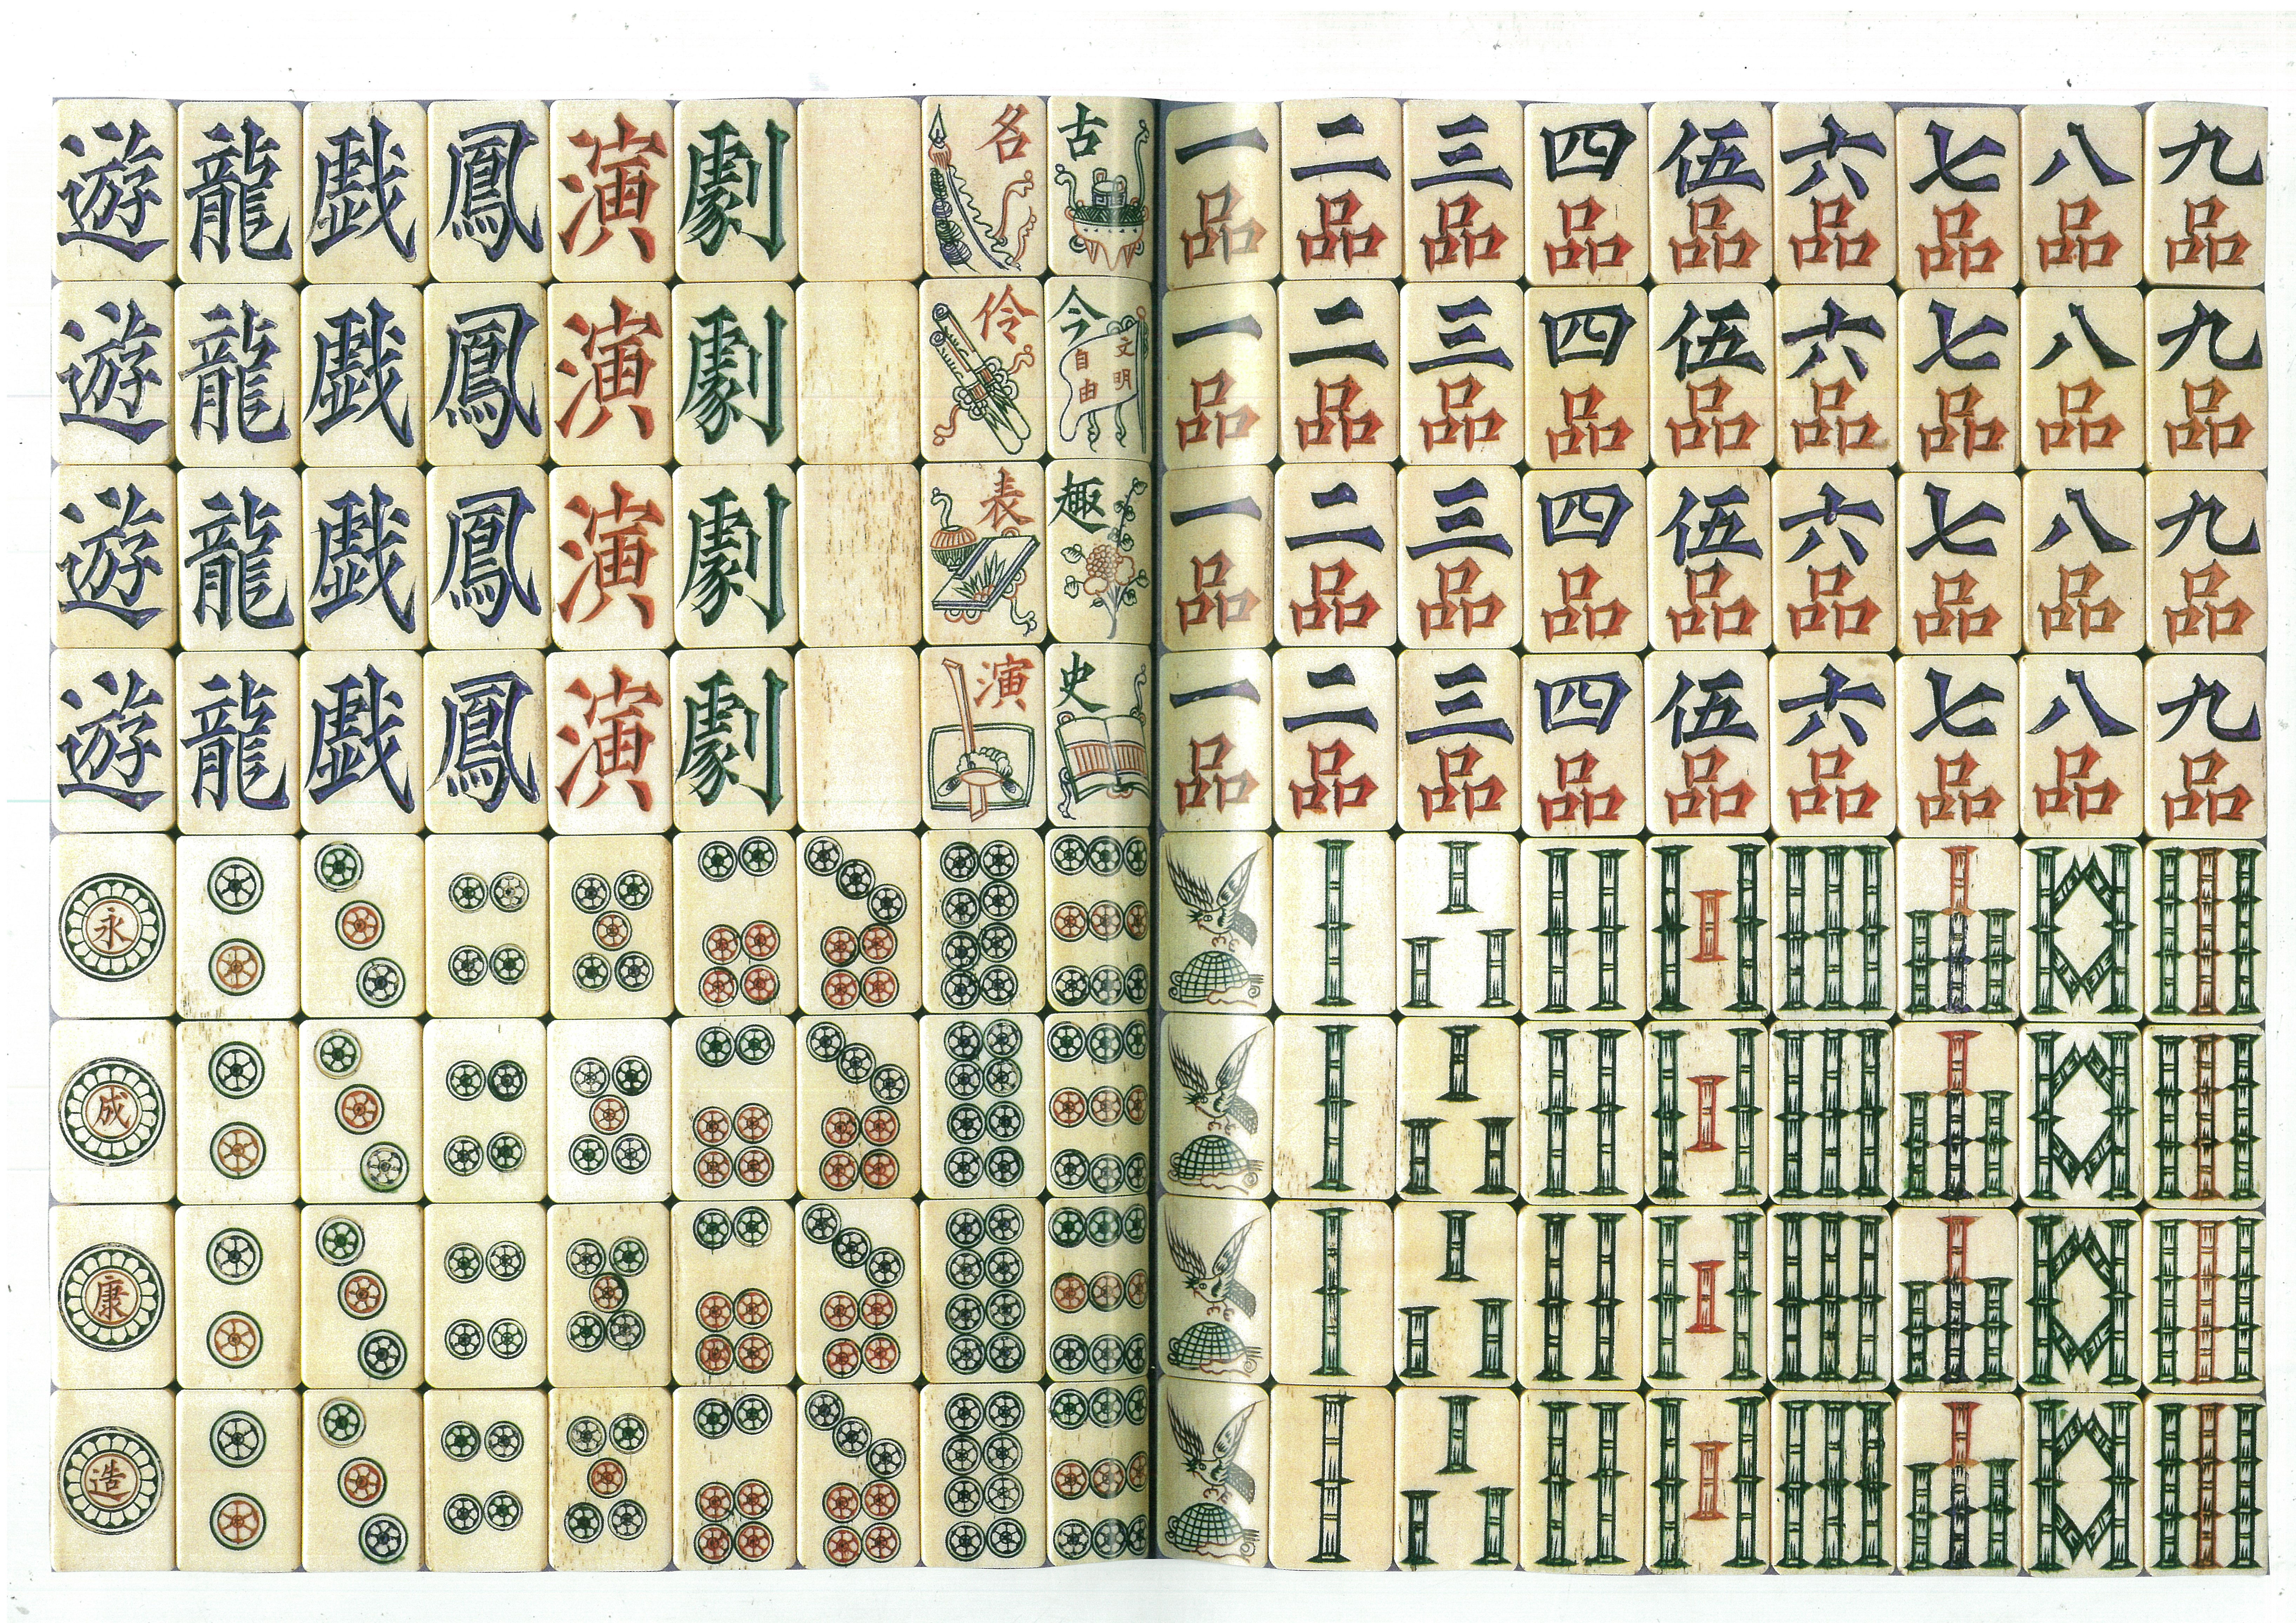 遊 龍 戲 鳳 演 劇 名 古 一品 二品 三品 四品 伍品 六品 七品 八品 九品
遊 龍 戲 鳳 演 劇 伶 今 文明 自由 一品 二品 三品 四品 伍品 六品 七品 八品 九品
遊 龍 戲 鳳 演 劇 表 趣 一品 二品 三品 四品 伍品 六品 七品 八品 九品
遊 龍 戲 鳳 演 劇 演 史 一品 二品 三品 四品 伍品 六品 七品 八品 九品
永
成
康
造